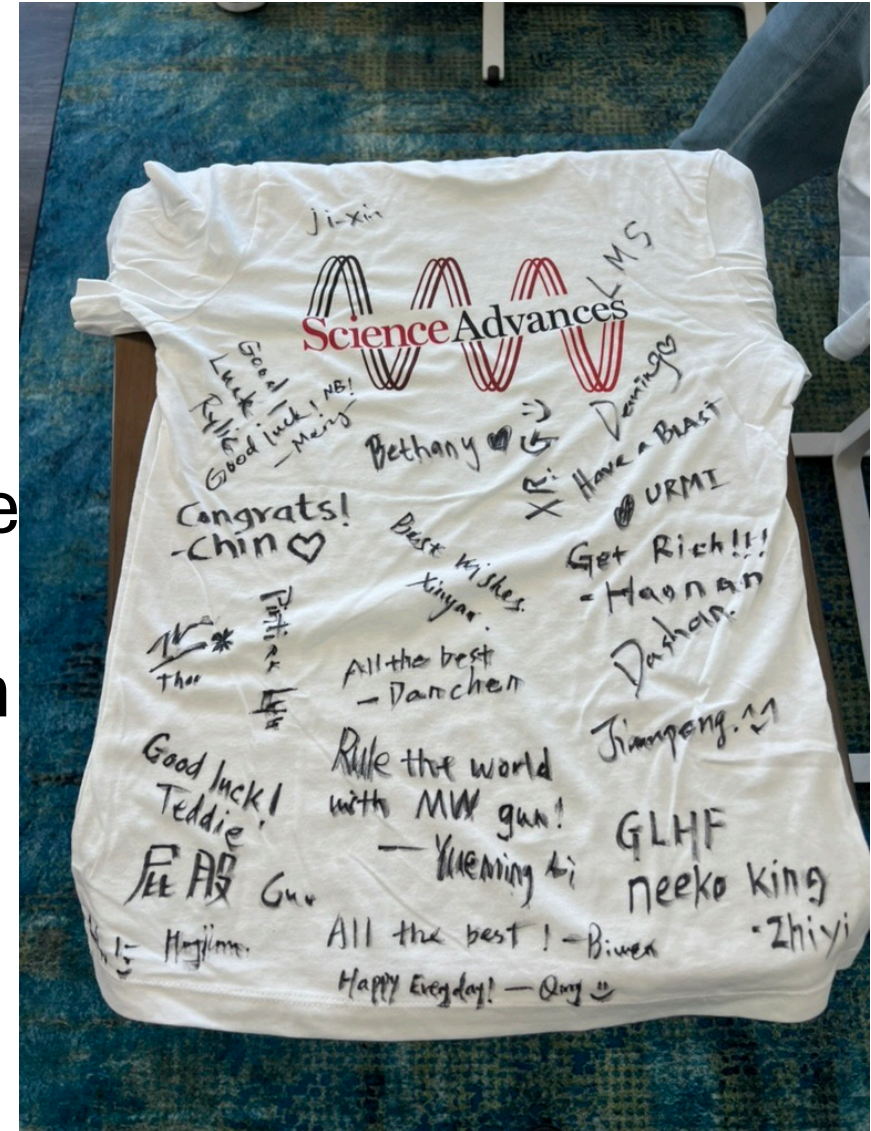 ji-xin
LMS
Science Advances
Good
Luck!
Rylie
Good luck! NB!
- Mercy
Bethany ♥
XRi
Deming ♡
Have a BLAST
♥ URMI
Congrats!
-Chin ♡
Best wishes.
Xinyan.
Get Rich!!!
- Haonan
Dashan.
Thor
All the best
- Danchen
Jianpeng. ^^
Good luck!
Teddie
Rule the world
with MW gun!
— Yueming Li
GLHF
neeko king
- Zhiyi
屁股 Guo
All the best ! - Biwen
Happy Everyday! — Qing
e